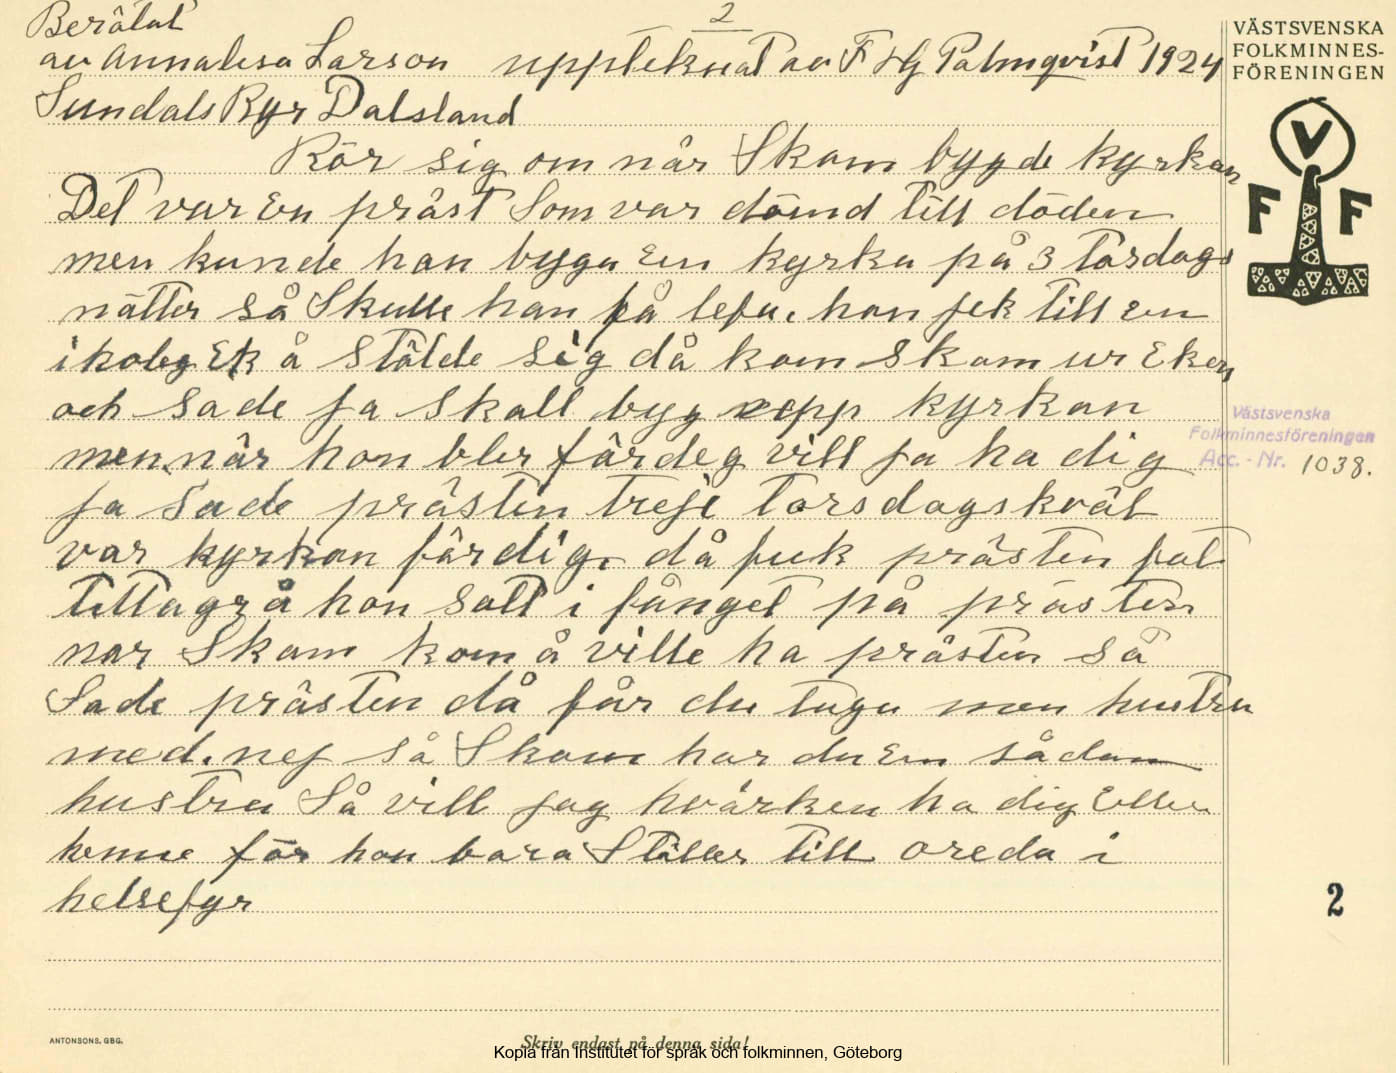 2
Berätat
av Annalisa Larson uppteknat av F Hj Palmqvist 1924
Sundals Ryr Dalsland
Rör sig om när Skam bygde kyrkan
Det var En präst Som var dömd till döden
men kunde han byga En kyrka på 3 Torsdags
nätter så Skulle han få lefva. han fek till en
i holeg Ek å Stälde Sig då kom Skam ur Eken
och Sade ja Skall byg upp kyrkan
men när hon bler färdeg vill ja ha dig
ja Sade prästen treje Torsdagskväl
var kyrkan färdig. då feck prästen fat
hon Satt i fänget på prästen
nar Skam kom å ville ha prästen Så
Sade prästen då får du taga men hustru
med. nej Så Skam har du En sådan
hustru Så vill jag hvärken ha dig Eller
henne för hon bara Stiller till oreda i
helsefyr
VÄSTSVENSKA
FOLKMINNES-
FÖRENINGEN
V
F F
Västsvenska
Folkminnesföreningen
Acc.-Nr. 1038.
2
ANTONSONS, GBG.
Skriv endast på denna sida!
Kopia från Institutet för språk och folkminnen, Göteborg